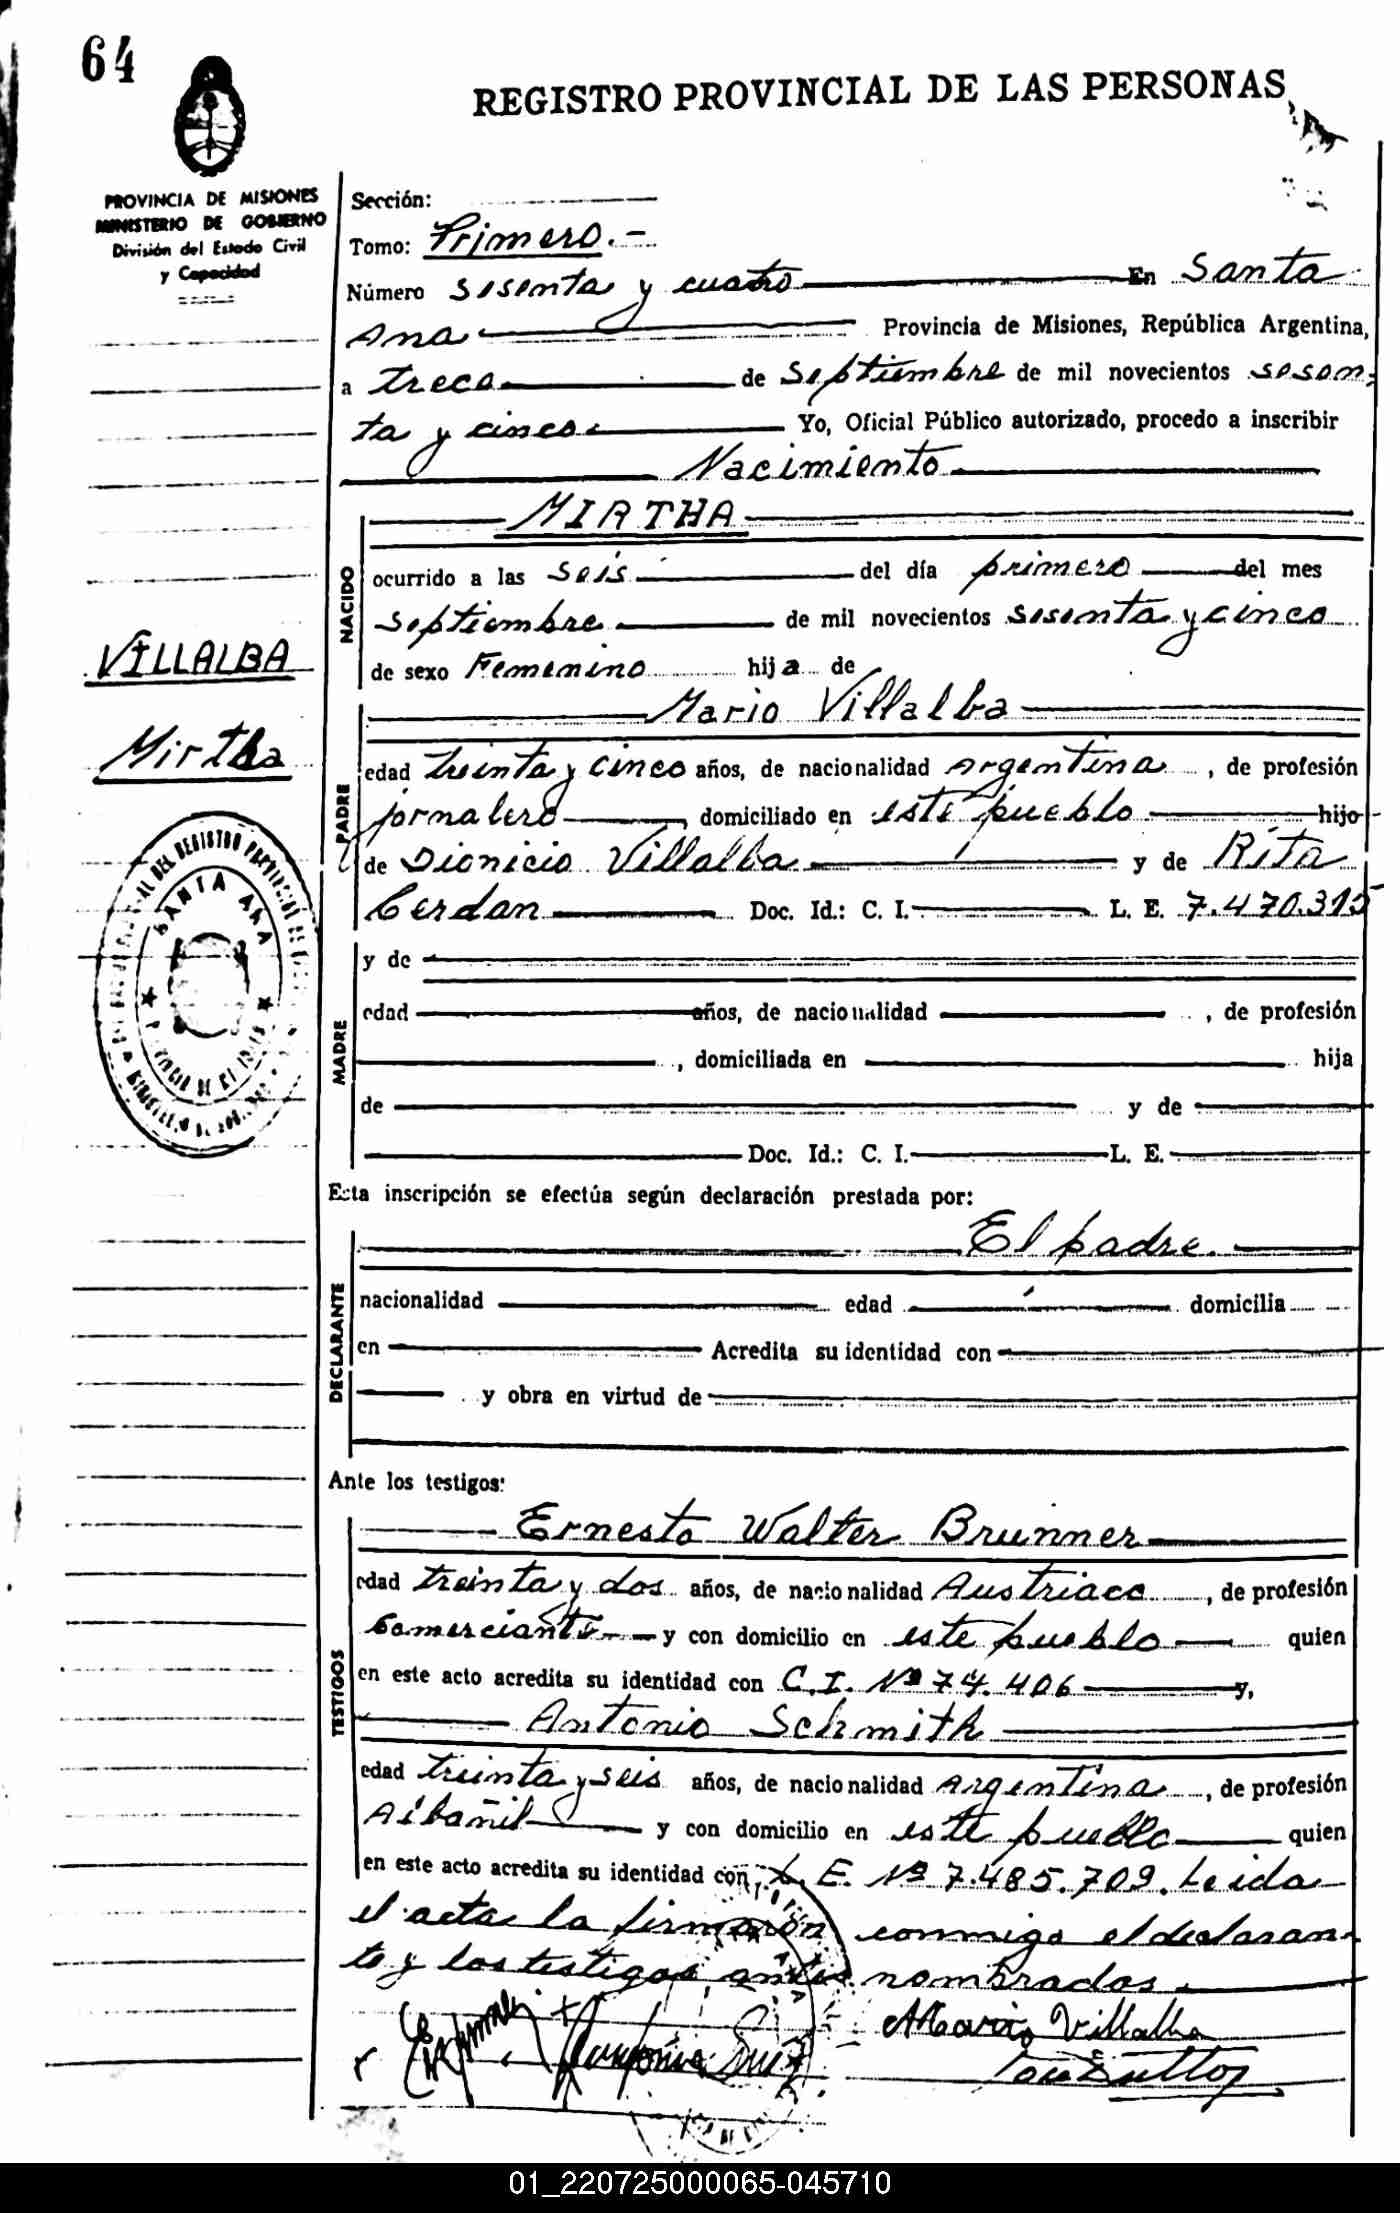 64
REGISTRO PROVINCIAL DE LAS PERSONAS
PROVINCIA DE MISIONES
MINISTERIO DE GOBIERNO
División del Estado Civil
y Capacidad
Sección:
Tomo: Primero.-
Número sesenta y cuatro En Santa
Ana Provincia de Misiones, República Argentina,
a trece de Septiembre de mil novecientos sesen-
ta y cinco. Yo, Oficial Público autorizado, procedo a inscribir
Nacimiento
MIRTHA
NACIDO
ocurrido a las seis del día primero del mes
septiembre de mil novecientos sesenta y cinco
de sexo Femenino hija de
VILLALBA
Mirtha
Mario Villalba
PADRE
edad treinta y cinco años, de nacionalidad Argentina, de profesión
jornalero, domiciliado en este pueblo hijo
de Dionicio Villalba y de Rita
Cerdan Doc. Id.: C. I. L. E. 7.470.315
SANTA ANA
MADRE
y de
edad años, de nacionalidad , de profesión
, domiciliada en hija
de y de
Doc. Id.: C. I. L. E.
Esta inscripción se efectúa según declaración prestada por:
El padre.
DECLARANTE
nacionalidad edad domicilia
en Acredita su identidad con
y obra en virtud de
Ante los testigos:
Ernesto Walter Brunner
TESTIGOS
edad treinta y dos años, de nacionalidad Austriaca, de profesión
Comerciante y con domicilio en este pueblo quien
en este acto acredita su identidad con C.I. Nº 74.406 y,
Antonio Schmith
edad treinta y seis años, de nacionalidad Argentina, de profesión
Albañil y con domicilio en este pueblo quien
en este acto acredita su identidad con L. E. Nº 7.485.709. Leida
el acta la firmaron conmigo el declaran-
te y los testigos antes nombrados.
Mario Villalba
01_220725000065-045710